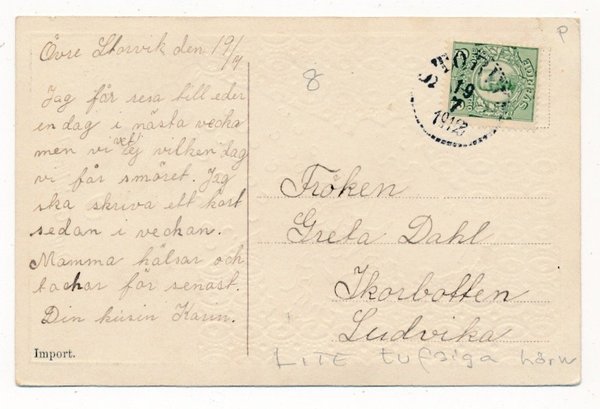 Övre Storvik den 19/7
Jag får resa till eder
en dag i nästa vecka
men vi vet ej vilken dag
vi får smöret. Jag
ska skriva ett kort
sedan i veckan.
Mamma hälsar och
tackar för senast.
Din kusin Karin.
Import.
8
P
SVERIGE
19
7
1912
Fröken
Greta Dahl
Skorbotten
Ludvika
LITE tufsiga hörn